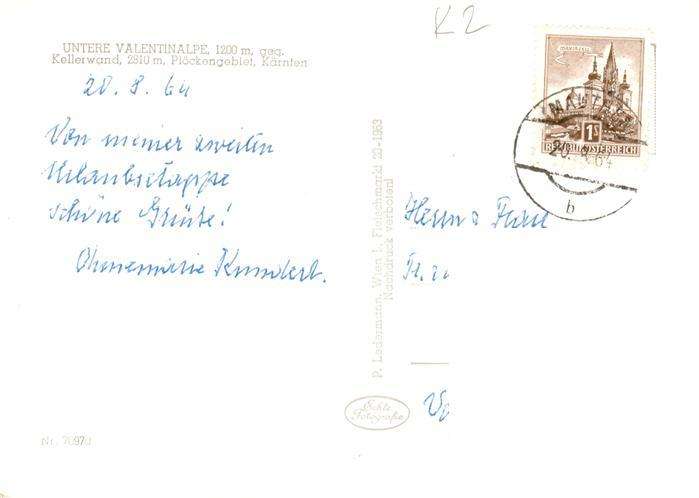 K2
UNTERE VALENTINALPE, 1200 m, geg.
Kellerwand, 2810 m, Plöckengebiet, Kärnten
20. 8. 64
Von meiner zweiten
Urlaubsetappe
schöne Grüße!
Kundert.
P. Ledermann, Wien I, Fleischmarkt 20 - 1963
Nachdruck verboten!
MARIAZELL
1S
REPUBLIK ÖSTERREICH
MAUT
20. 8. 64
b
Herrn u Frau
Echte
Fotografie
Nr. 7097d